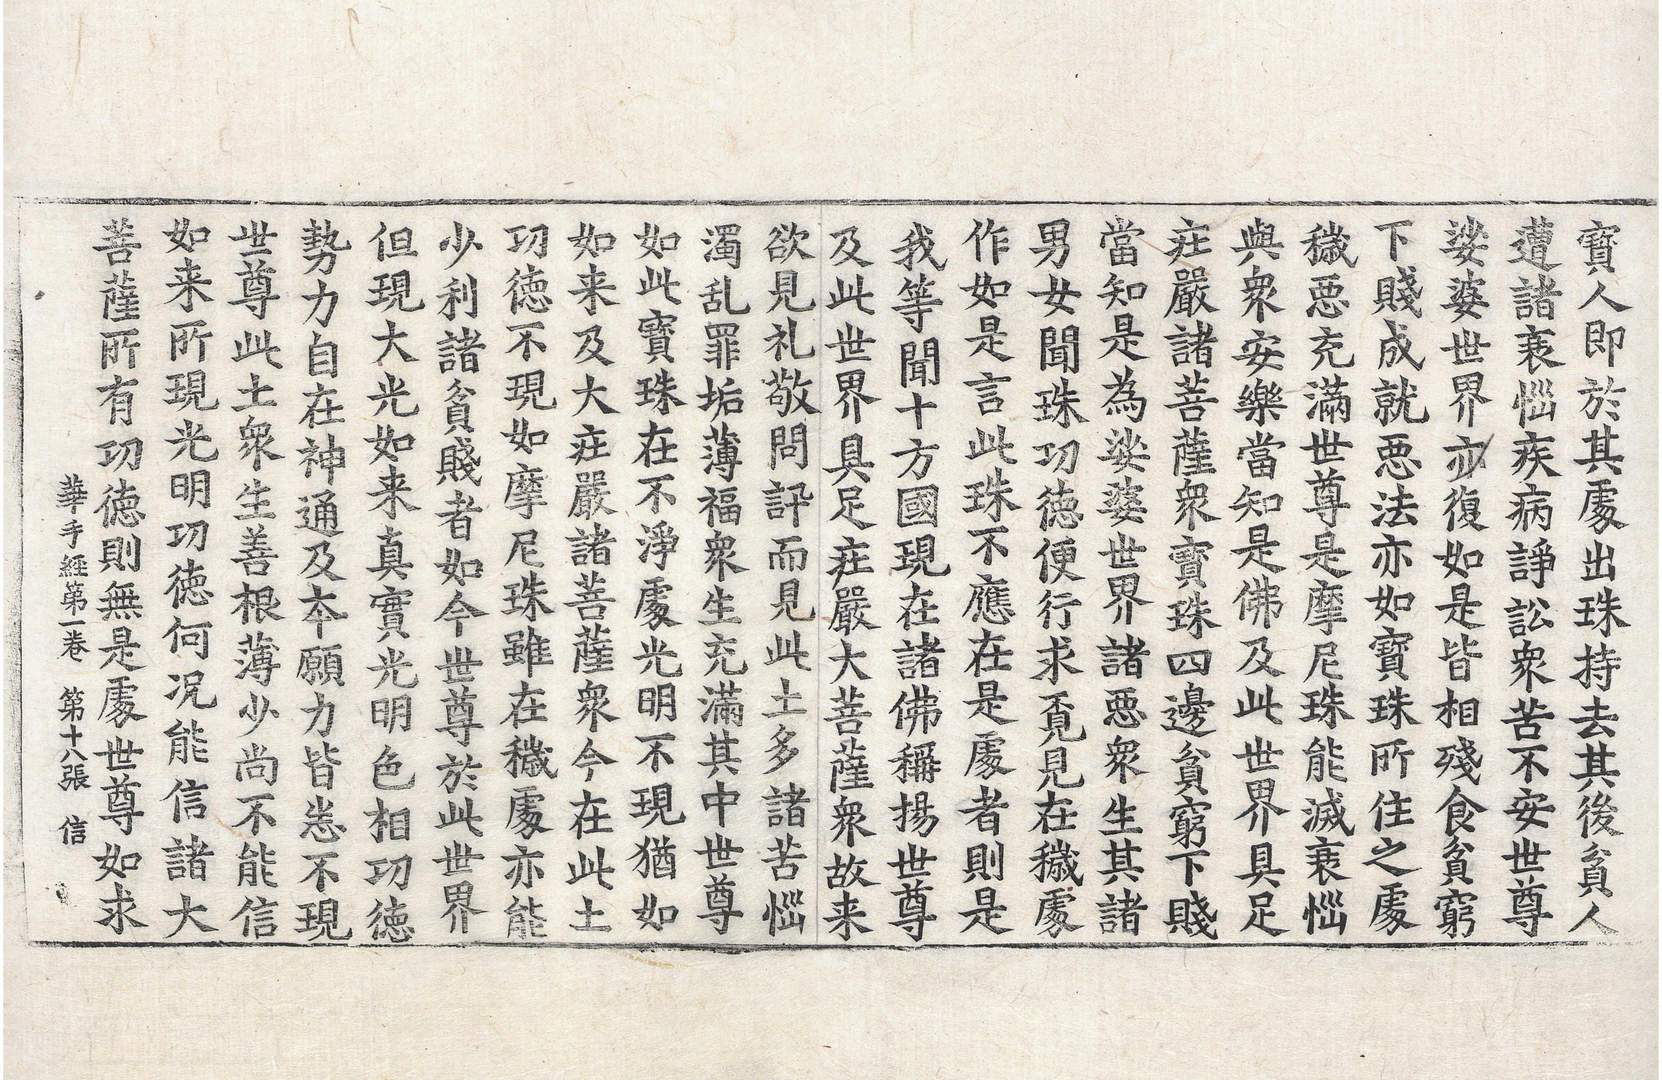 寳人即於其處出珠持去其後貧人
遭諸衰惱疾病諍訟衆苦不安世尊
娑婆世界亦復如是皆相殘食貧窮
下賤成就惡法亦如寳珠所住之處
穢惡充滿世尊是摩尼珠能滅衰惱
與衆安樂當知是佛及此世界具足
莊嚴諸菩薩衆寳珠四邊貧窮下賤
當知是為娑婆世界諸惡衆生其諸
男女聞珠功徳便行求覔見在穢處
作如是言此珠不應在是處者則是
我等聞十方國現在諸佛稱揚世尊
及此世界具足莊嚴大菩薩衆故来
欲見礼敬問訊而見此土多諸苦惱
濁乱罪垢薄福衆生充滿其中世尊
如此寳珠在不淨處光明不現猶如
如来及大莊嚴諸菩薩衆今在此土
功徳不現如摩尼珠雖在穢處亦能
少利諸貧賤者如今世尊於此世界
但現大光如来真實光明色相功徳
勢力自在神通及夲願力皆悉不現
世尊此土衆生善根薄少尚不能信
如来所現光明功徳何况能信諸大
菩薩所有功徳則無是處世尊如求
華手経第一卷　第十八張　信